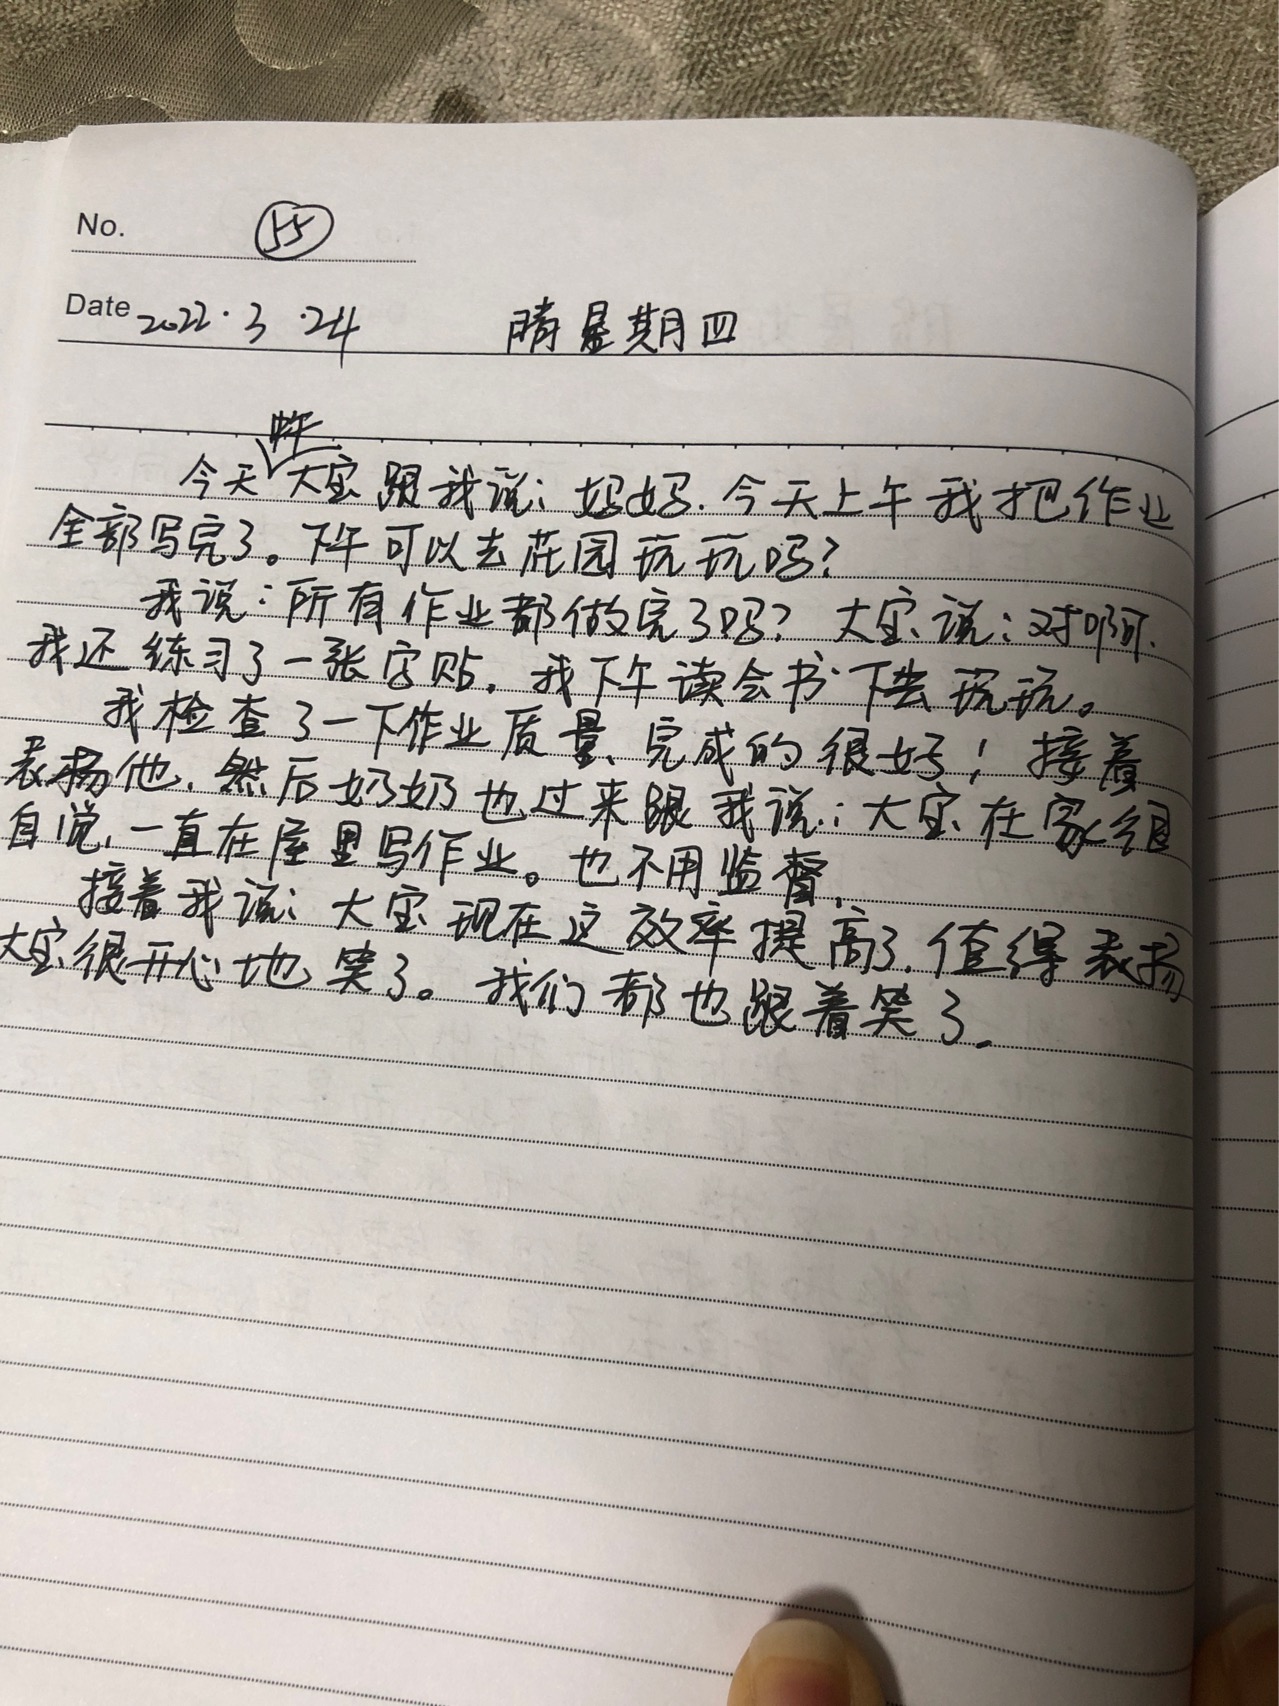 No. 55
Date 2022.3.24 晴 星期四
中午
今天大宝跟我说:妈妈.今天上午我把作业
全部写完了。下午可以去花园玩玩吗?
我说:所有作业都做完了吗? 大宝说:对啊.
我还练习了一张字贴.我下午读会书下去玩玩。
我检查了一下作业质量、完成的很好!接着
表扬他.然后奶奶也过来跟我说:大宝在家很
自觉,一直在屋里写作业。也不用监督.
接着我说:大宝现在这效率提高了.值得表扬
大宝很开心地笑了。我们都也跟着笑了.